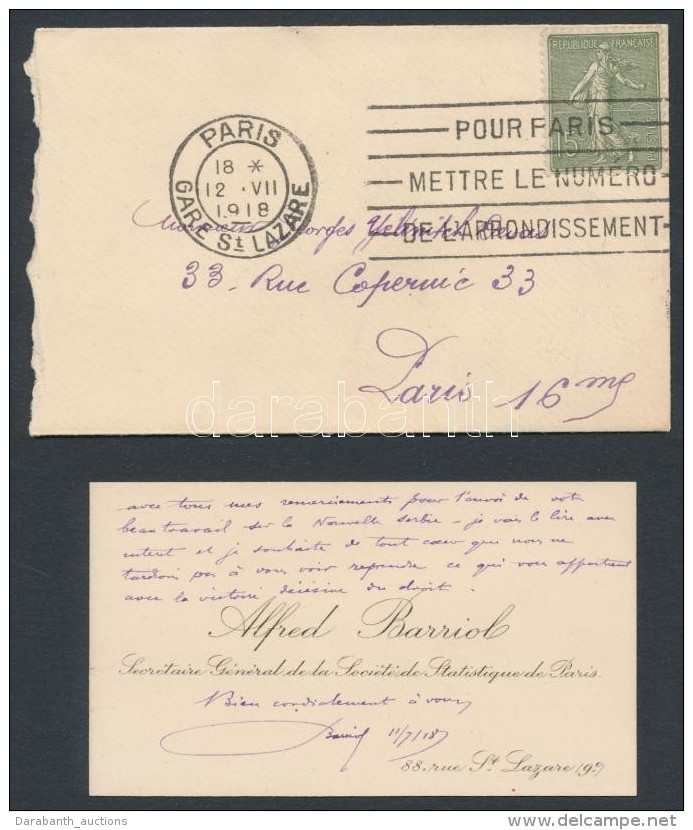 RÉPUBLIQUE FRANÇAISE
15
PARIS
18 *
12 · VII
1918
GARE St LAZARE
POUR PARIS
METTRE LE NUMÉRO
DE L'ARRONDISSEMENT
Monsieur Georges
33. Rue Copernic 33
Paris 16 me
darabanth
avec tous mes remerciements pour l'envoi de votre
beau travail sur la Nouvelle Serbie - je vais le lire avec
interet et je souhaite de tout cœur que nous ne
tardions pas à vous voir reprendre ce qui vous appartient
avec la victoire décisive du droit.
Alfred Barriol
Secrétaire Général de la Société de Statistique de Paris.
Bien cordialement à vous
Barriol 11/7/18
88, rue St Lazare (9e)
Darabanth_auctions
delcampe.net